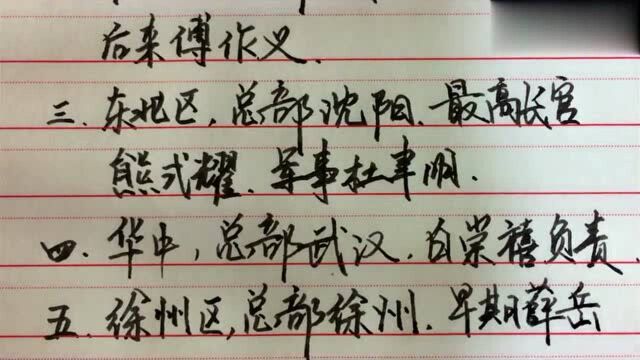 后来傅作义.
三.东北区,总部沈阳.最高长官
熊式耀.军事杜聿明.
四.华中,总部武汉.白崇禧负责.
五.徐州区,总部徐州.早期薛岳